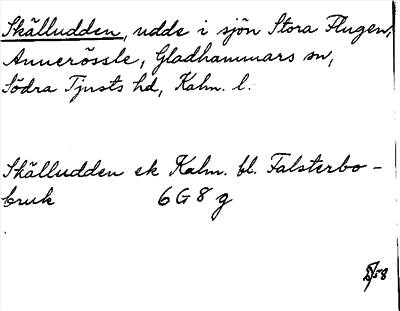 Skälludden, udde i sjön Stora Flugen,
Annerössle, Gladhammars sn,
Södra Tjusts hd, Kalm. l.
Skälludden ek Kalm. bl. Falsterbo-
bruk 6 G 8 g